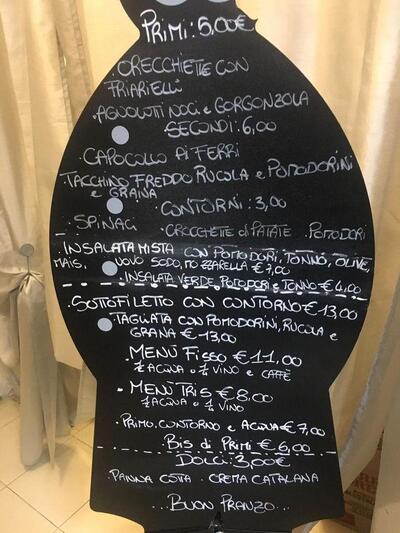 PRIMI: 5,00€
. ORECCHIETTE CON
FRIARIELLI
. AGNOLOTTI NOCI e GORGONZOLA
SECONDI: 6,00
. CAPOCOLLO AI FERRI
. TACCHINO FREDDO RUCOLA e POMODORINI
e GRANA
CONTORNI: 3,00
. SPINACI . CROCCHETTE di PATATE . POMODORI
. INSALATA MISTA CON POMODORI, TONNO, OLIVE,
MAIS, UOVO SODO, MOZZARELLA € 7,00
. INSALATA VERDE, POMODORI e TONNO € 4,00
. SOTTOFILETTO CON CONTORNO € 13,00
. TAGLIATA CON POMODORINI, RUCOLA e
GRANA € 13,00
. MENÙ FISSO € 11,00
½ ACQUA o ¼ VINO e CAFFÈ
. MENÙ TRIS € 8,00
½ ACQUA o ¼ VINO
. PRIMO, CONTORNO e ACQUA € 7,00
BIS di PRIMI € 6,00
DOLCI: 3,00€
. PANNA COTTA . CREMA CATALANA
... BUON PRANZO...